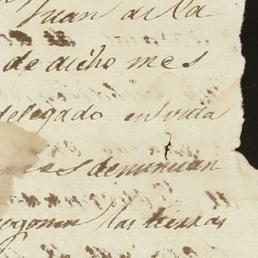 Juan de la
de dicho mes
delegado en villa
denuncian
las tierras